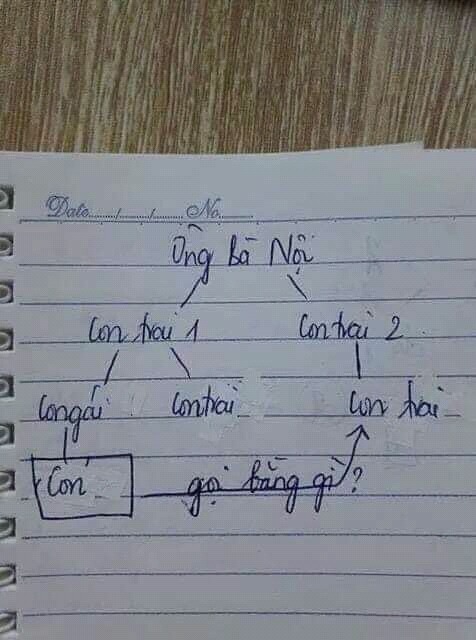 Date....../....../......No.......
Ông bà Nội
Con trai 1 Con trai 2
Con gái Con trai Con trai
Con gọi bằng gì?